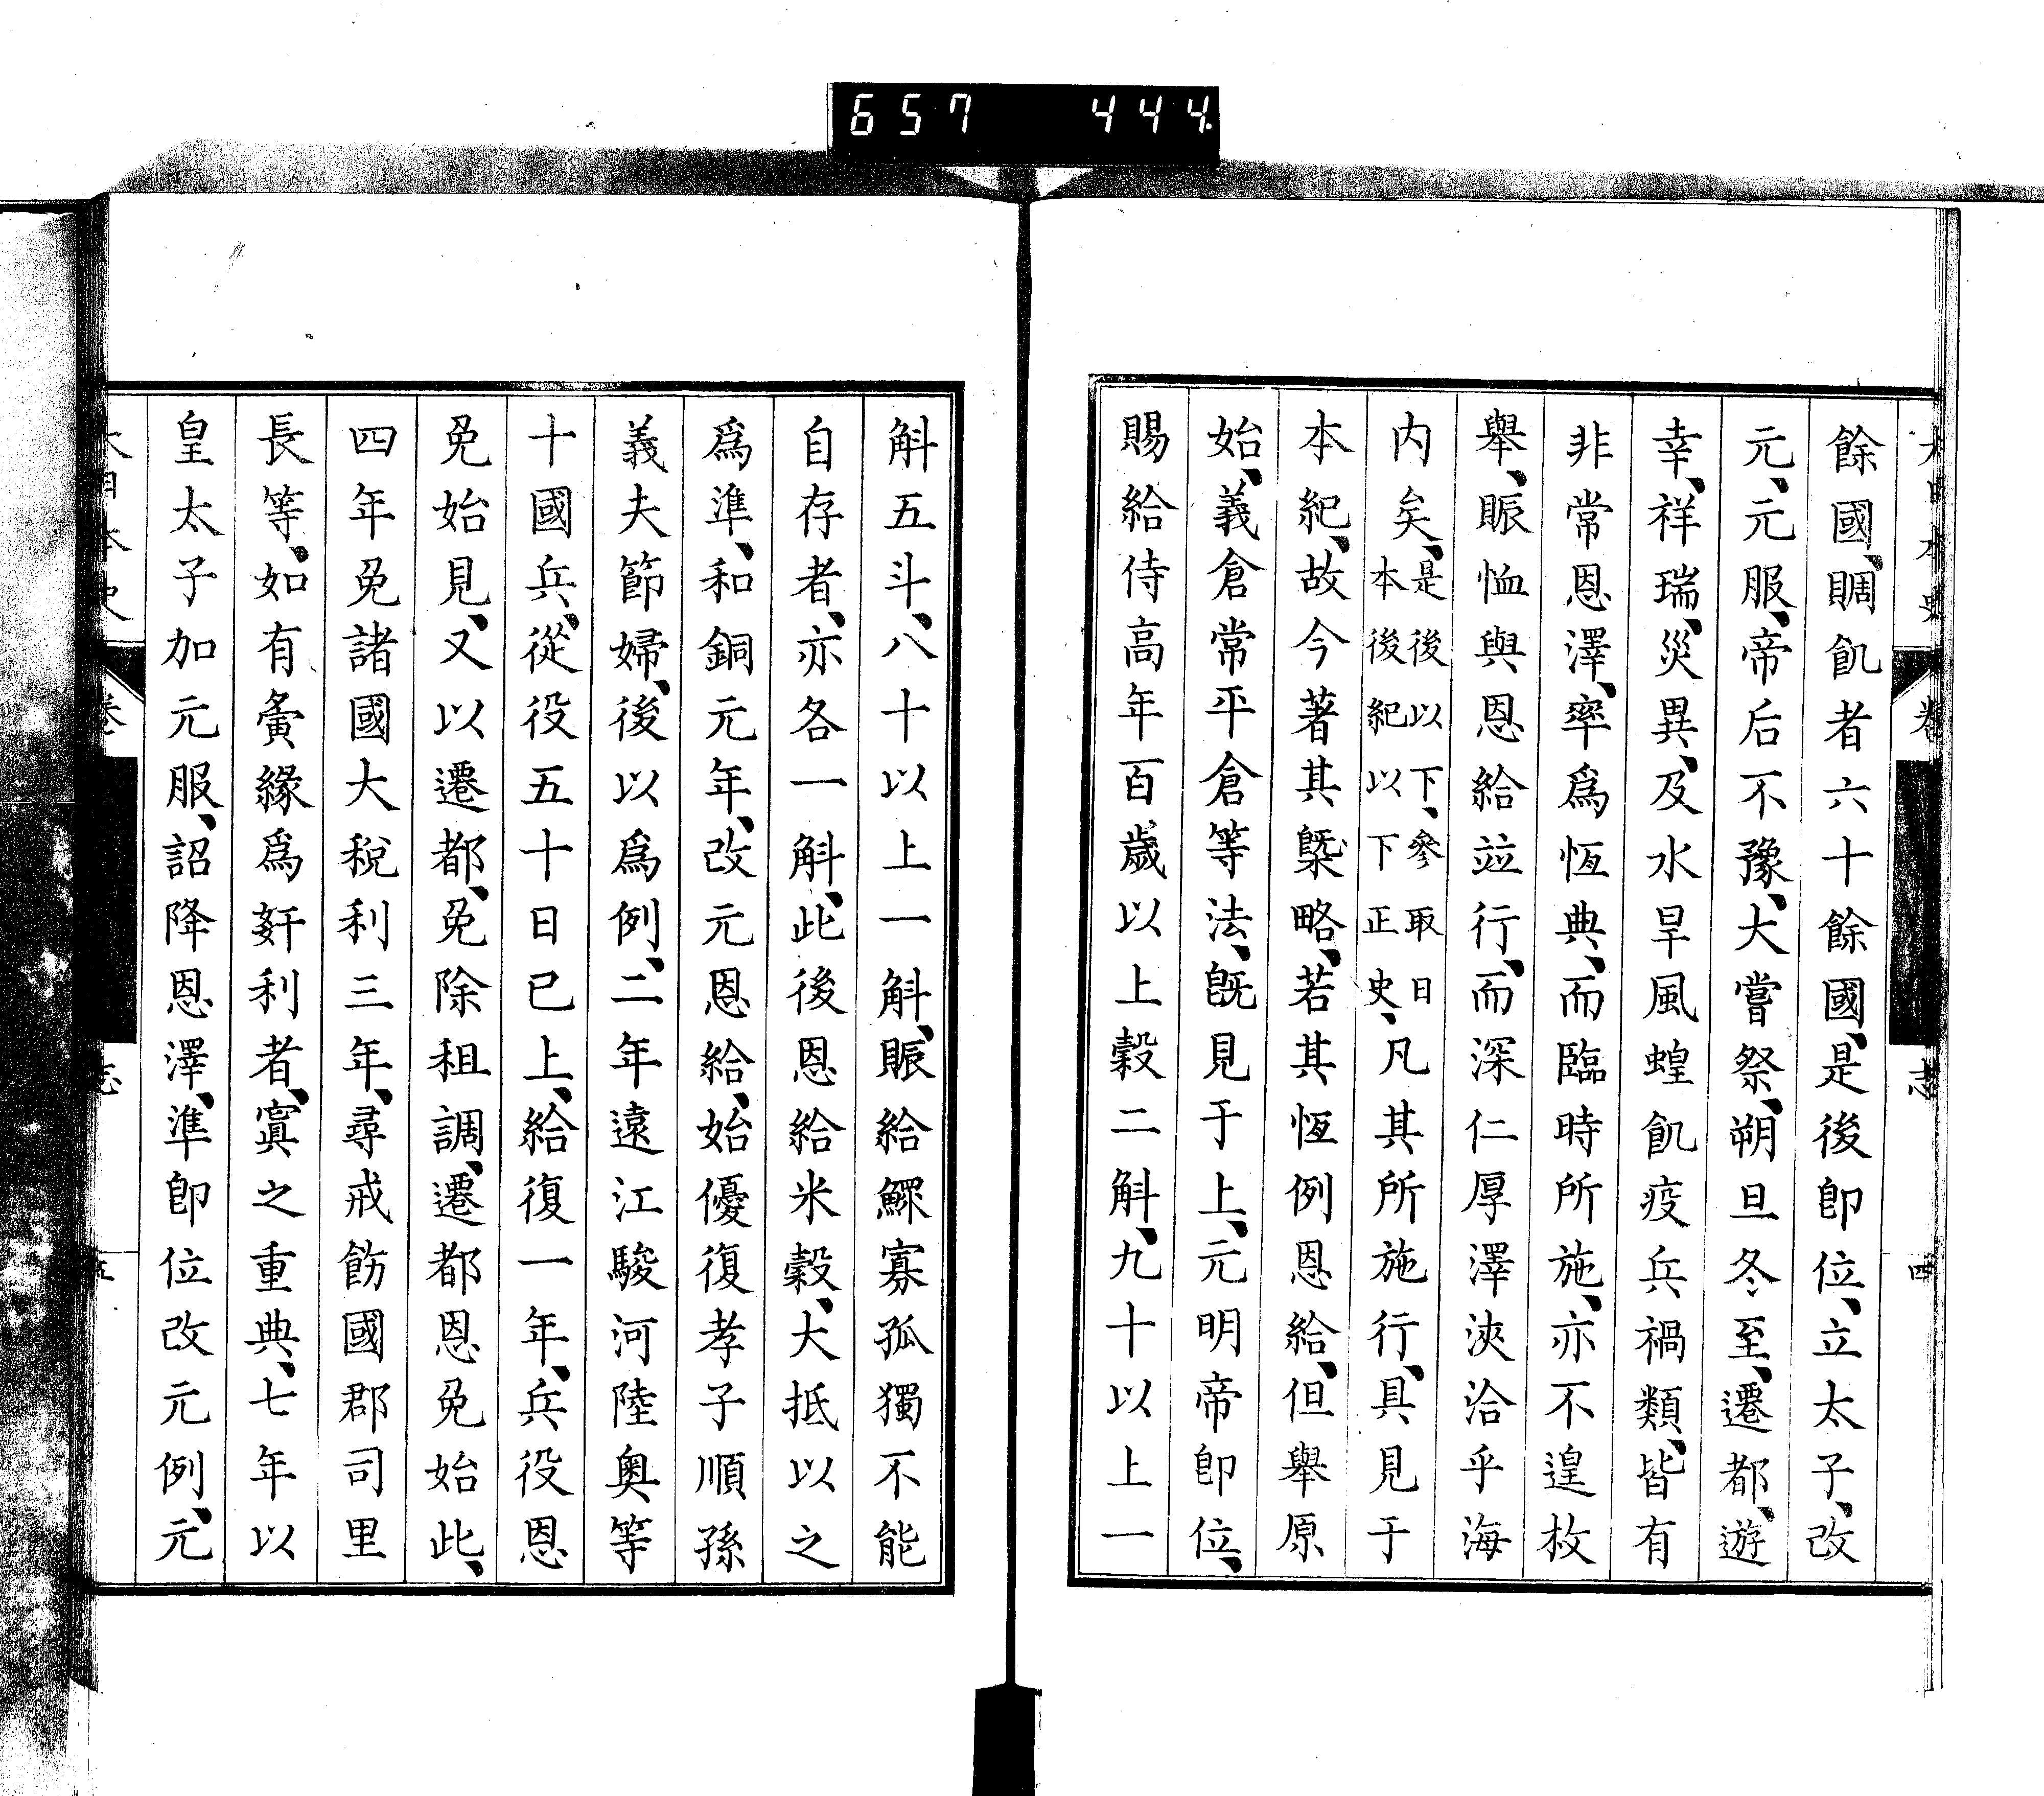 657 444
大日本史 卷 志 四
餘國、賙飢者六十餘國、是後卽位、立太子、改
元、元服、帝后不豫、大嘗祭、朔旦冬至、遷都、遊
幸、祥瑞、災異、及水旱風蝗飢疫兵禍類、皆有
非常恩澤、率爲恆典、而臨時所施、亦不遑枚
舉、賑恤與恩給竝行、而深仁厚澤浹洽乎海
内矣、是後以下、參取日本後紀以下正史、凡其所施行、具見于
本紀、故今著其槩略、若其恆例恩給、但舉原
始、義倉常平倉等法、旣見于上、元明帝卽位、
賜給侍高年百歲以上穀二斛、九十以上一
斛五斗、八十以上一斛、賑給鰥寡孤獨不能
自存者、亦各一斛、此後恩給米穀、大抵以之
爲準、和銅元年、改元恩給、始優復孝子順孫
義夫節婦、後以爲例、二年遠江駿河陸奧等
十國兵、從役五十日已上、給復一年、兵役恩
免始見、又以遷都、免除租調、遷都恩免始此、
四年免諸國大稅利三年、尋戒飭國郡司里
長等、如有夤緣爲姧利者、寘之重典、七年以
皇太子加元服、詔降恩澤、準卽位改元例、元
大日本史 卷 志 五